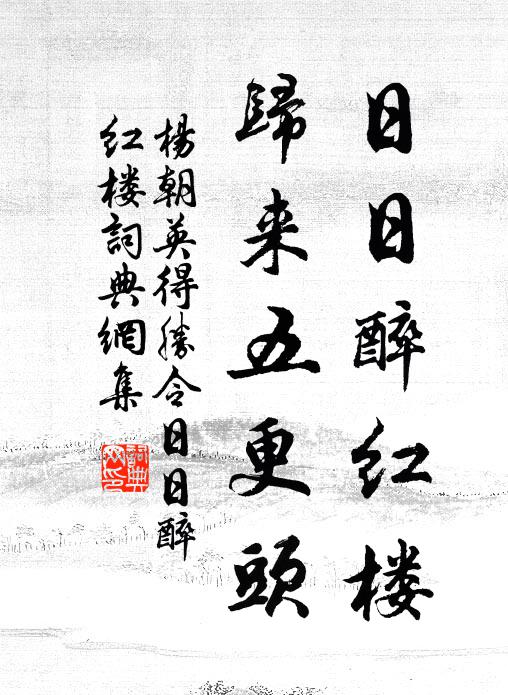 日日醉红楼
歸来五更頭
楊朝英得勝令日日醉
红楼詞典網集
詞典网印